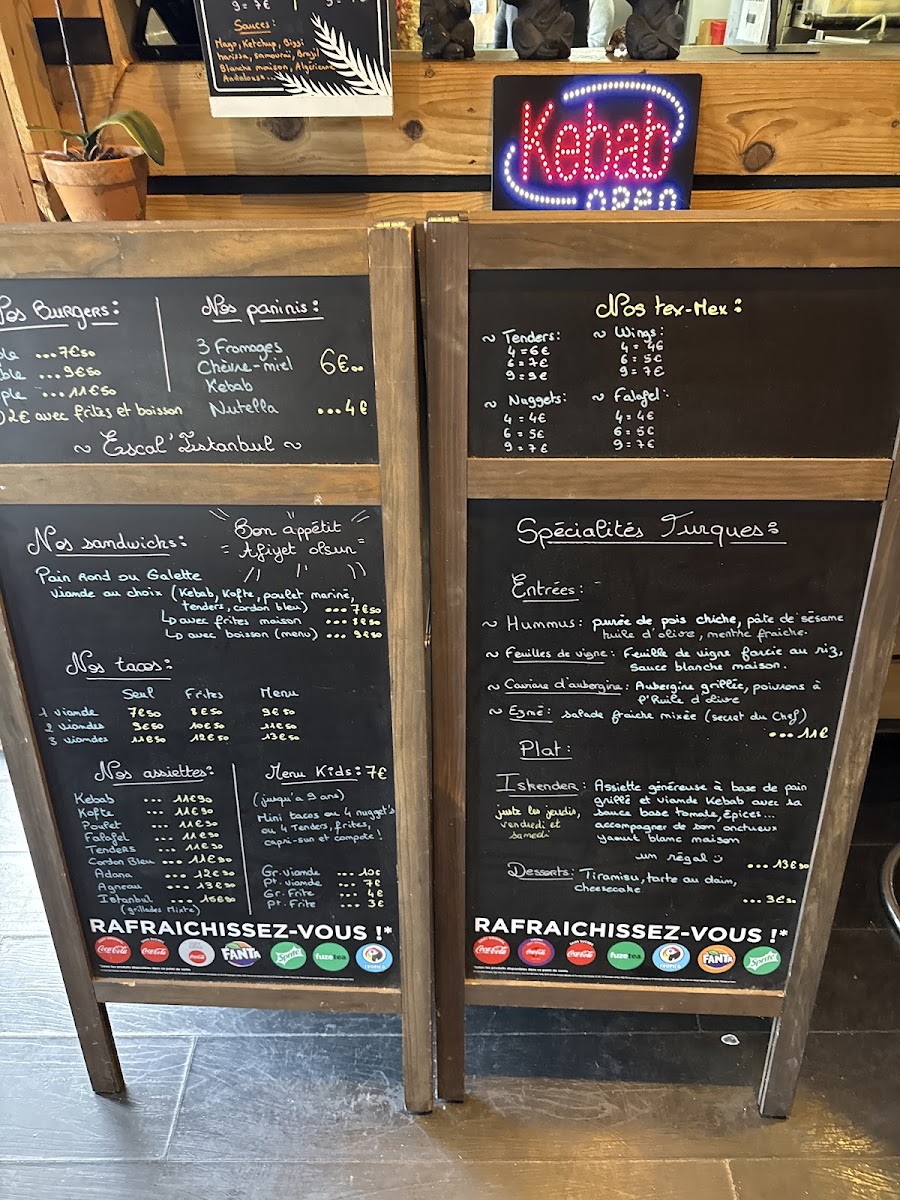 9 = 7€
Sauces :
Mayo, Ketchup, Biggi
harissa, samouraï, Brazil
Blanche maison, Algérienne
Andalous...
Kebab
OPEN
Nos Burgers :
...7€50
...9€50
...11€50
2€ avec frites et boisson
Nos paninis :
3 Fromages
Chèvre-miel
Kebab
6€00
Nutella ...4€
~ Escal'Istanbul ~
Nos sandwichs :
Bon appétit
= Afiyet olsun =
Pain Rond ou Galette
viande au choix (Kebab, Kofte, poulet mariné,
tenders, cordon bleu) ... 7€50
↳ avec frites maison ... 8€50
↳ avec boisson (menu) ... 9€50
Nos tacos :
Seul Frites Menu
1 viande 7€50 8€50 9€50
2 viandes 9€50 10€50 11€50
3 viandes 11€50 12€50 13€50
Nos assiettes :
Kebab ... 11€90
Kofte ... 11€90
Poulet ... 11€90
Falafel ... 11€90
Tenders ... 11€90
Cordon Bleu ... 11€90
Adana ... 12€90
Agneau ... 13€90
Istanbul ... 15€90
(grillades Mixte)
Menu Kids : 7€
(jusqu'a 9 ans)
Mini tacos ou 4 nugget's
ou 4 Tenders, frites,
capri-sun et compote !
Gr. viande ... 10€
Pt. viande ... 7€
Gr. Frite ... 4€
Pt. Frite ... 3€
RAFRAICHISSEZ-VOUS !*
Coca-Cola
Coca-Cola
Coca-Cola
FANTA
Sprite
fuzetea
TROPICO
Nos tex-Mex :
~ Tenders :
4 = 6€
6 = 7€
9 = 9€
~ Wings :
4 = 4€
6 = 5€
9 = 7€
~ Nuggets :
4 = 4€
6 = 5€
9 = 7€
~ Falafel :
4 = 4€
6 = 5€
9 = 7€
Spécialités Turques :
Entrées :
~ Hummus : purée de pois chiche, pâte de sésame
huile d'olive, menthe fraiche.
~ Feuilles de vigne : Feuille de vigne farcie au riz,
sauce blanche maison.
~ Caviar d'aubergine : Aubergine grillée, poivrons à
l'Huile d'olive
~ Ezmé : salade fraiche mixée (secret du Chef)
... 11€
Plat :
Iskender : Assiette généreuse à base de pain
grillé et viande Kebab avec sa
sauce base tomate, épices...
accompagner de son onctueux
yaourt blanc maison
un régal
juste les jeudis,
vendredi et
samedi
... 13€50
Desserts : Tiramisu, tarte au daim,
cheesecake
... 3€50
RAFRAICHISSEZ-VOUS !*
Coca-Cola
Coca-Cola
fuzetea
TROPICO
FANTA
Sprite